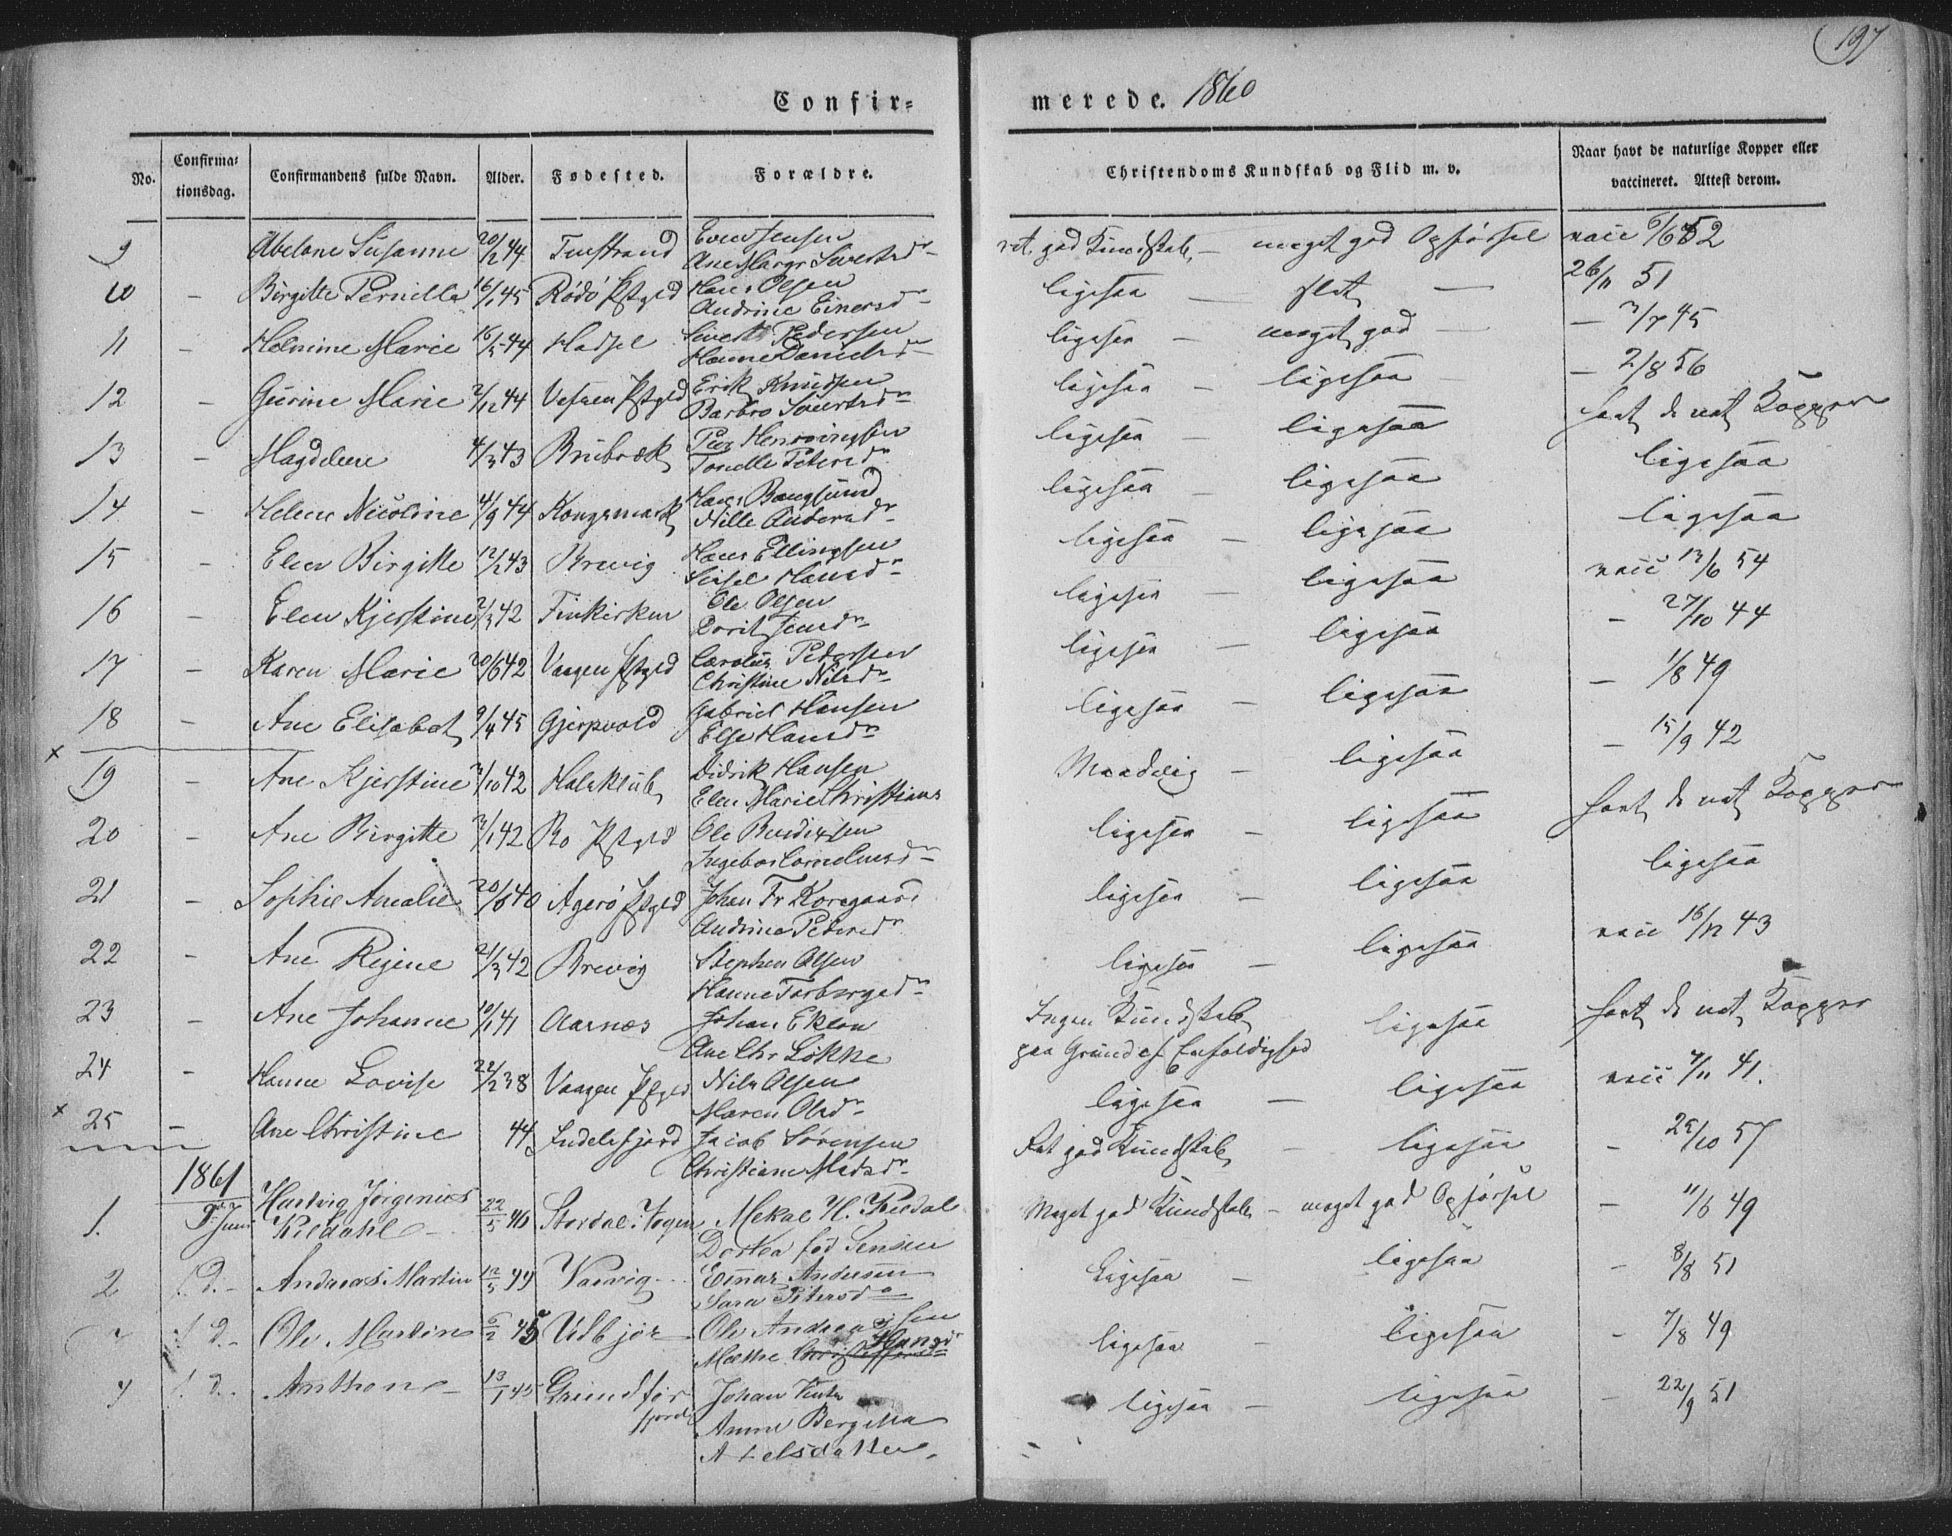 197
Confir-
merede. 1860
No.
Confirma-
tionsdag.
Confirmandens fulde Navn.
Alder.
Fødested.
Forældre.
Christendoms Kundskab og Flid m. v.
Naar havt de naturlige Kopper eller
vaccineret. Attest derom.
9 Abelone Susanne 20/12 44 Evert Jensen ret god Kundskab - meget god Opførsel vacc 52
Ane Margr Sivertsdr
10 - Birgitte Pernilla 16/1 45 Rødø Pstgld Hans Olsen ligesaa - slet - 26/11 51
Andrine Einersdr
11 - Helmine Marie 16/5 44 Hadsel Sivert Pedersen ligesaa - meget god - - 3/7 45
Hanne Danielsdr
12 - Gurine Marie 2/12 44 Vefsen Pstgld Erik Knudsen ligesaa - ligesaa - 2/8 56
Barbro Sivertsdr
13 - Magdelene 4/3 43 Peer Henningsen ligesaa - ligesaa havt de nat Kopper
Tonelle Petersdr
14 - Helene Nicoline 4/9 44 Kongsmark Hans Bangsund ligesaa - ligesaa ligesaa
Nille Andersdr
15 - Elen Birgitte 12/2 43 Brevig Hans Ellingsen ligesaa - ligesaa ligesaa
Hansdr
16 - Elen Kjerstine 2/3 42 Finkirken Ole Olsen ligesaa - ligesaa vacc 13/6 54
Dorit Jensdr
17 - Karen Marie 20/6 42 Vaagen Pstgld Carolius Pedersen ligesaa - ligesaa - 27/10 44
Christine Nilsdr
18 - Ane Elisabet 9/4 45 Gjerpvold Gabriel Hansen ligesaa - ligesaa - 1/8 49
Else Hansdr
x 19 - Ane Kjerstine 3/10 42 Didrik Hansen Maadelig - ligesaa - 15/9 42
Elen Marie Christians
20 - Ane Birgitte 3/1 42 Bø Pstgld Ole Bendixsen ligesaa - ligesaa havt de nat Kopper
Ingebor Corneliusdr
21 - Sophie Amalie 20/8 40 Agerø Pstgld Johan Fr Koregaard ligesaa - ligesaa ligesaa
Andrine Pedersdr
22 - Ane Regine 21/3 42 Brevig Stephen Olsen ligesaa - ligesaa vacc 16/12 43
Hanne Torbergsdr
23 - Ane Johanne 10/1 41 Aarnes Johan Ingen Kundskab ligesaa havt de nat Kopper
Ane Chr Løkke paa Grund af Enfoldighed
24 - Hanne Lovise 22/2 38 Vaagen Pstgld Nils Olsen ligesaa - ligesaa vacc 7/11 41.
Maren Olsdr
x 25 - Ane Christine 44 Indelsfjord Jacob Sørensen Ret god Kundskab - ligesaa - 25/10 57
Christiane Madsdr
1861
1. Juni Hartvig Jørginius 22/5 46 Mekal H. Kildal Meget god Kundskab - meget god Opførsel - 11/6 49
Kildahl Dortea fød Jensen
2 d. - Andreas Martin 12/5 44 Einar Andersen Ligesaa - ligesaa - 8/8 51
Sara Petersdr
d. - Ole Martin 6/2 45 Vidbjør Ole Andreassen ligesaa - ligesaa - 7/8 49
Hansdr
4 d. - Anthon 13/1 45 Grundfør Johan ligesaa - ligesaa - 22/9 51
fjord Anne Bergitta
Axelsdatter.